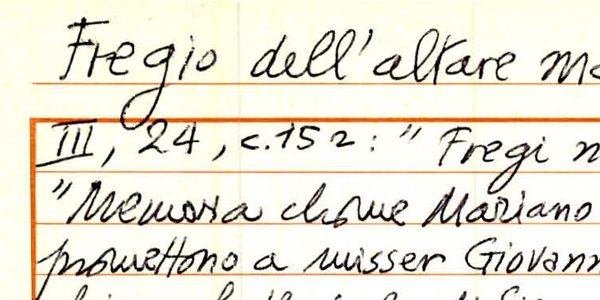 Fregio dell'altare
III, 24, c.152: "Fregi
"Memoria chome Mariano
promettono a misser Giovann